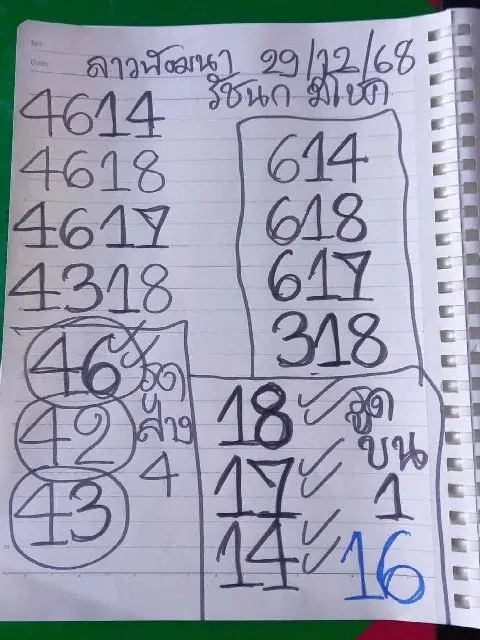 No.
Date
ลาวพัฒนา 29/12/68
รัชนก มีโชค
4614
4618
4617
4318
614
618
617
318
46
42
43
รูด
ล่าง
4
18
17
14
รูด
บน
1
16